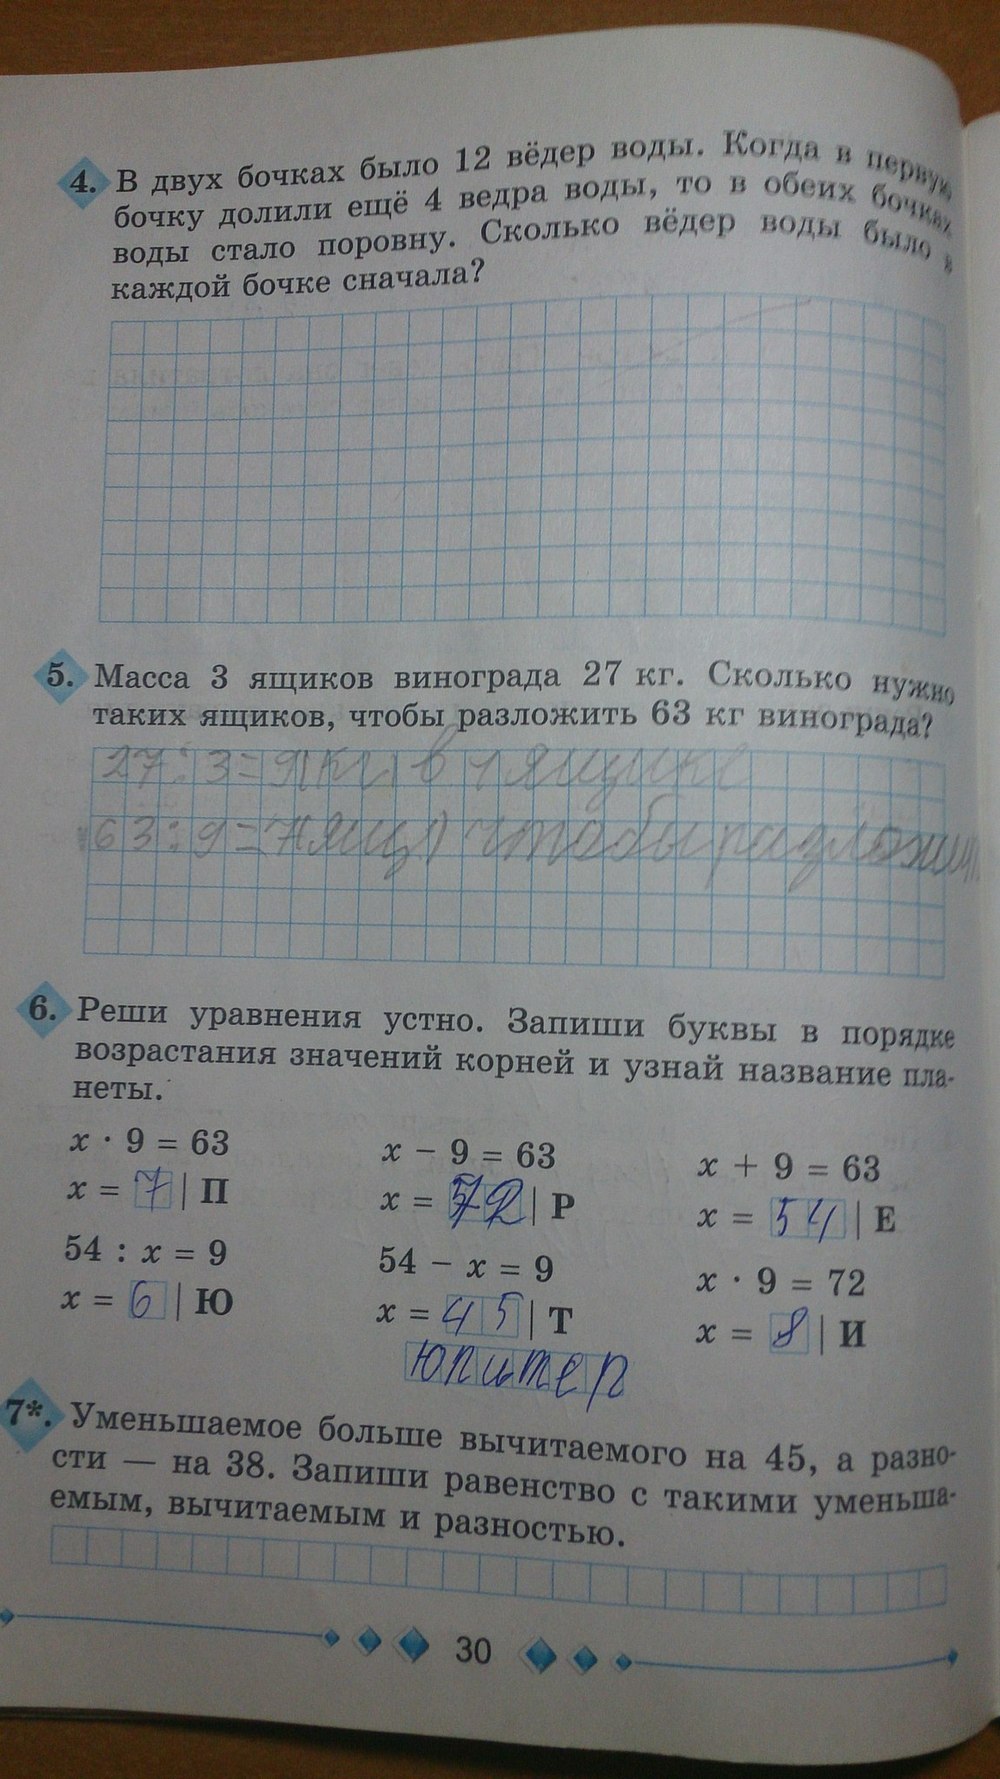 4. В двух бочках было 12 вёдер воды. Когда в первую
бочку долили ещё 4 ведра воды, то в обеих бочках
воды стало поровну. Сколько вёдер воды было в
каждой бочке сначала?
5. Масса 3 ящиков винограда 27 кг. Сколько нужно
таких ящиков, чтобы разложить 63 кг винограда?
27:3=9(кг) в 1 ящике
63:9=7(ящ) чтобы разложит
6. Реши уравнения устно. Запиши буквы в порядке
возрастания значений корней и узнай название пла-
неты.
x · 9 = 63 x − 9 = 63 x + 9 = 63
x = 7 | П x = 72 | Р x = 54 | Е
54 : x = 9 54 − x = 9 x · 9 = 72
x = 6 | Ю x = 45 | Т x = 8 | И
Юпитер
7*. Уменьшаемое больше вычитаемого на 45, а разно-
сти — на 38. Запиши равенство с такими уменьша-
емым, вычитаемым и разностью.
30